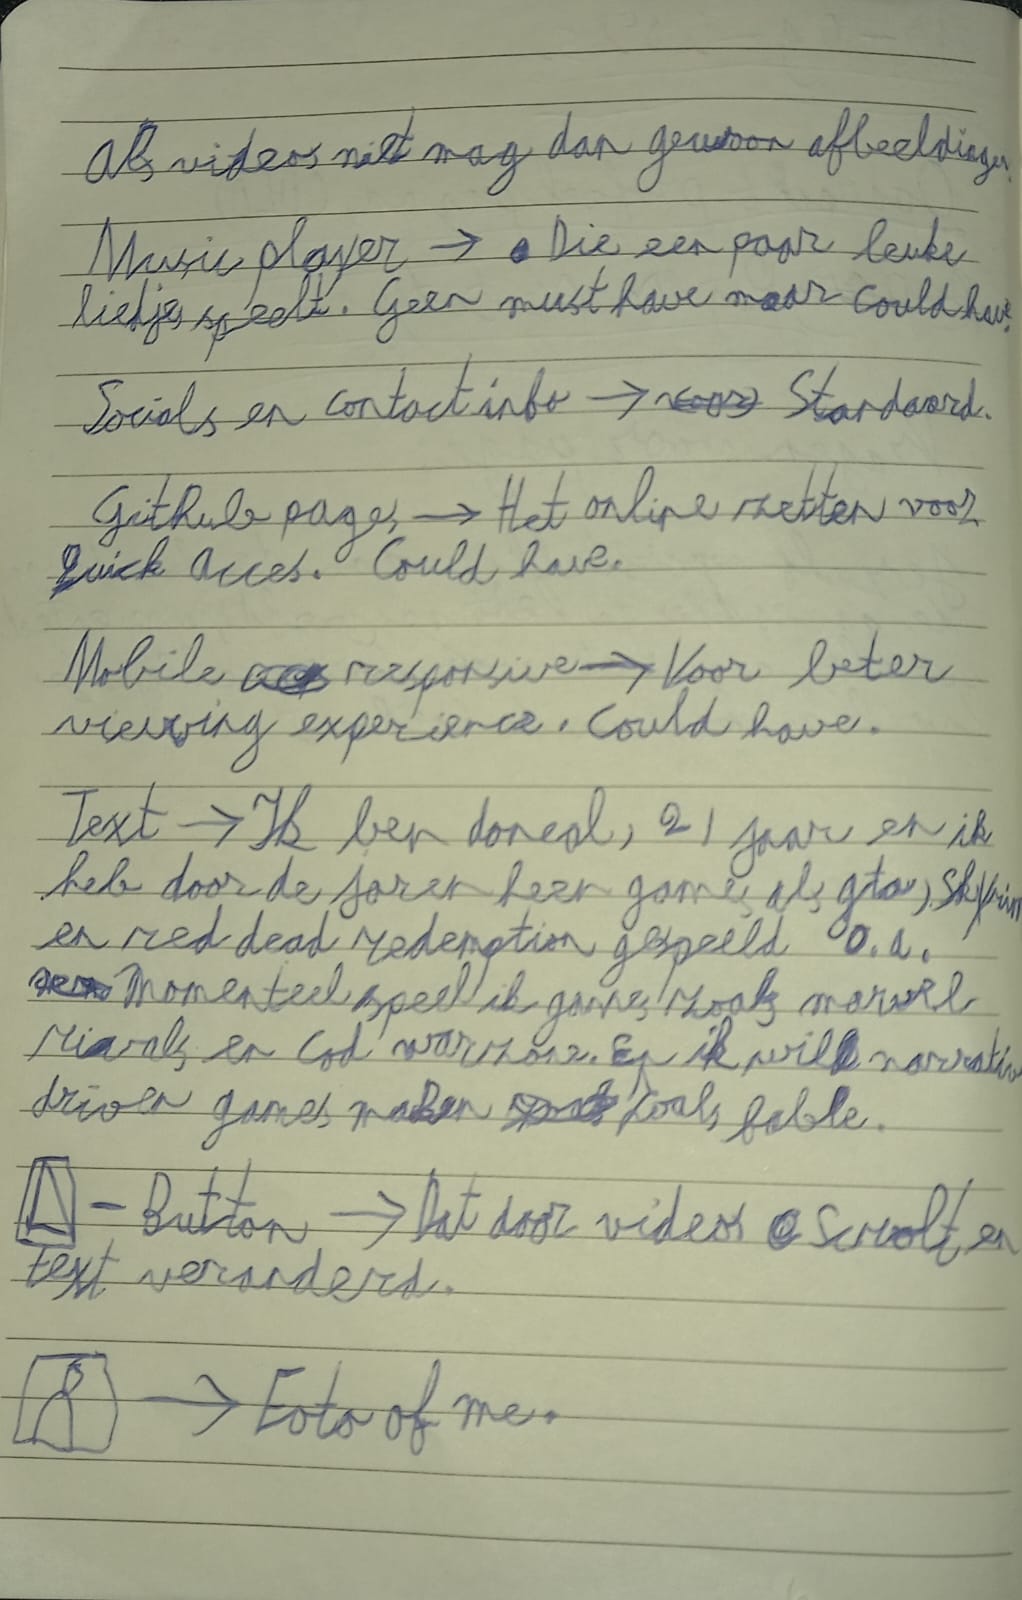 Als videos niet mag dan gewoon afbeeldingen.
Music player → Die een paar leuke
liedjes speelt. Geen must have maar Could have.
Socials en contact info → Standaard.
Github pages → Het online zetten voor
Quick Acces. Could have.
Mobile responsive → Voor beter
viewing experience. Could have.
Text → Ik ben doneal, 21 jaar en ik
heb door de jaren heen games als gta, Skyrim
en red dead redemption gespeeld o.a.
Momenteel speel ik games zoals marvel
rivals en Cod warzone. En ik wil narrative
driven games maken zoals fable.
- Button → Dat door videos Scrolt en
text veranderd.
→ Foto of me.